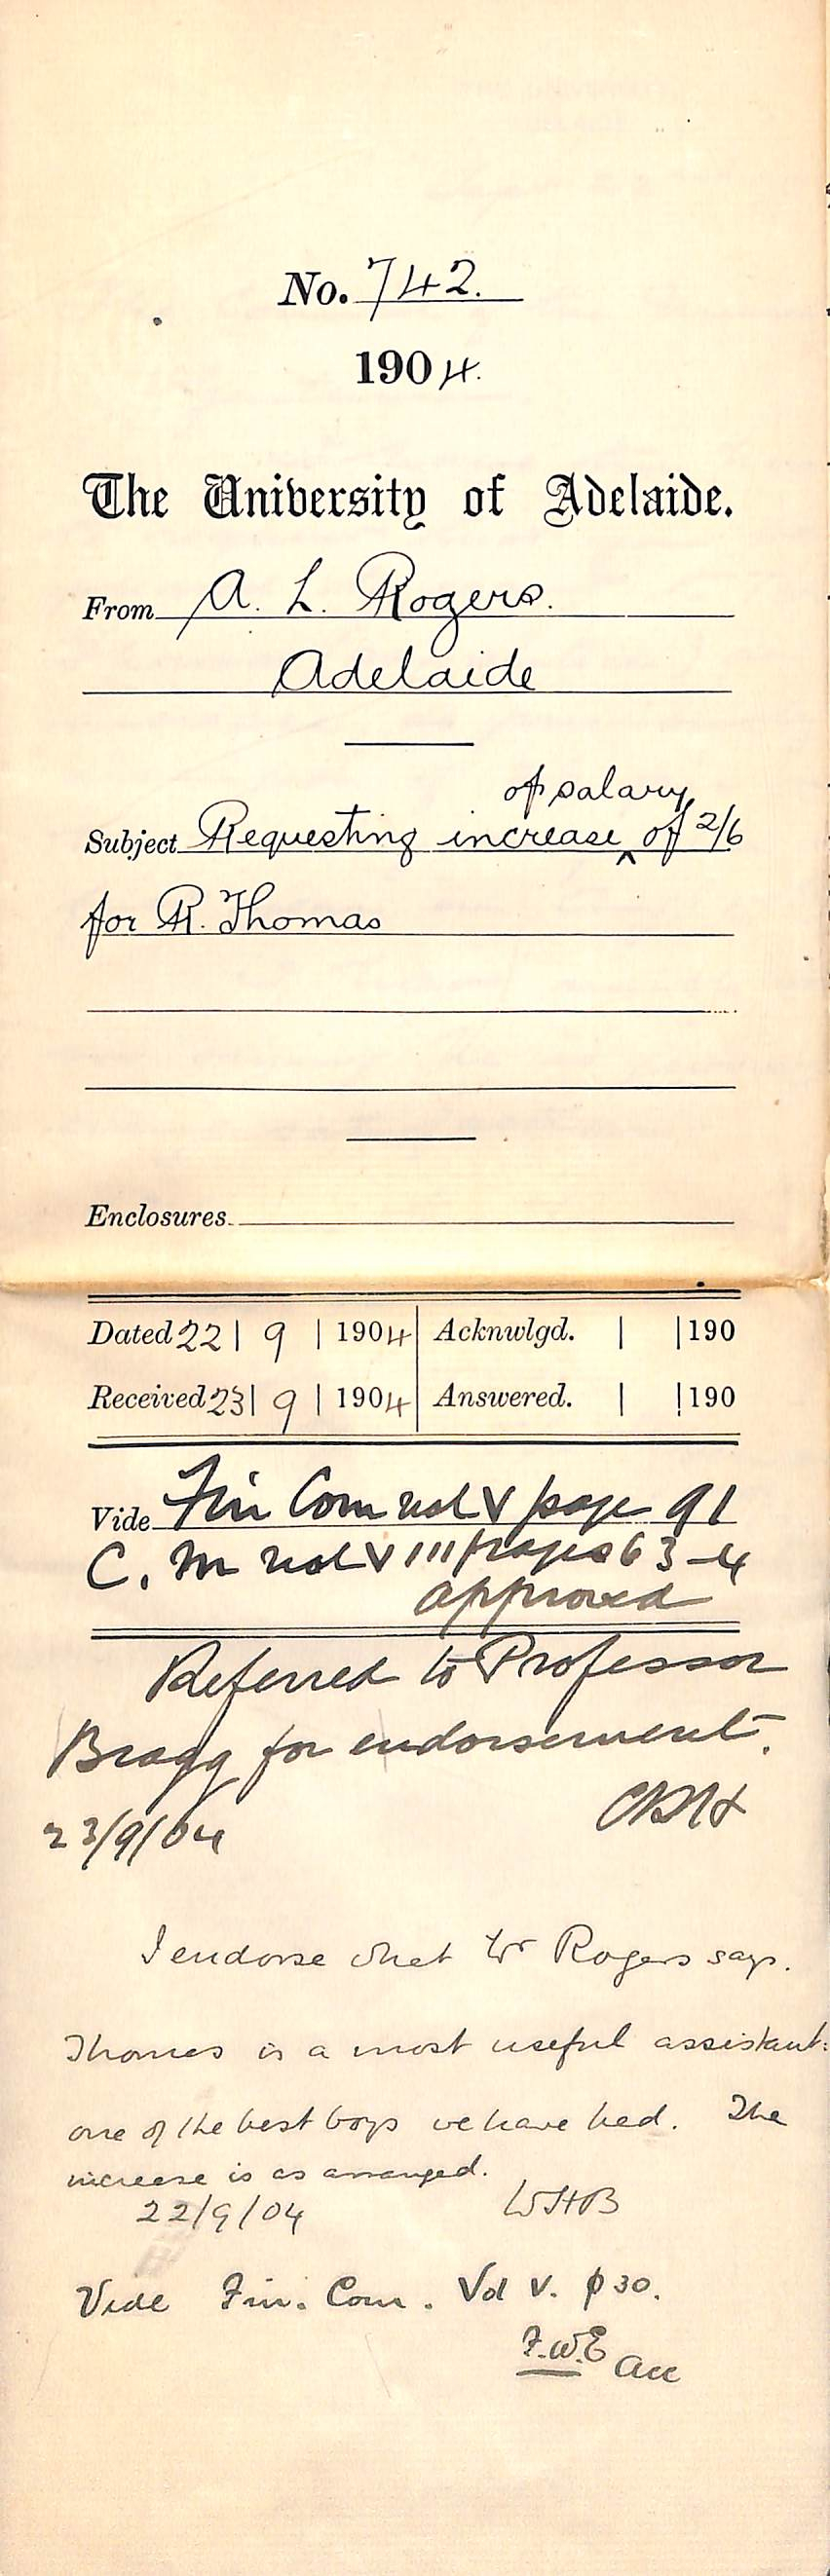 No. 742.
1904.
The University of Adelaide.
From A. L. Rogers.
Adelaide
of salary
Subject Requesting increase ^ of 2/6
for R. Thomas
Enclosures.
Dated 22 | 9 | 1904 | Acknwlgd. | | 190
Received 23 | 9 | 1904 | Answered. | | 190
Vide Fin Com vol V page 91
C. M vol VIII pages 63-4
approved
Referred to Professor
Bragg for endorsement.
CRH
23/9/04
I endorse what Mr Rogers says.
Thomas is a most useful assistant:
one of the best boys we have had. The
increase is as arranged.
22/9/04 WHB
Vide Fin. Com. Vol V. p 30.
F.W.E Acc